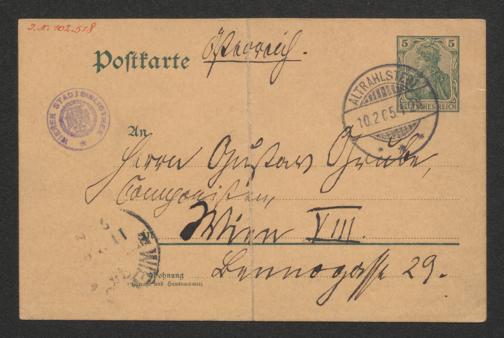 J.N. 102.518
Postkarte Österreich.
5 5
DEUTSCHES REICH
ALTRAHLSTEDT
10.2.05
WIENER STADTBIBLIOTHEK
An
Herrn Gustav Grube,
Componisten,
Wien VIII.
Bennogasse 29.
Wohnung
WIEN